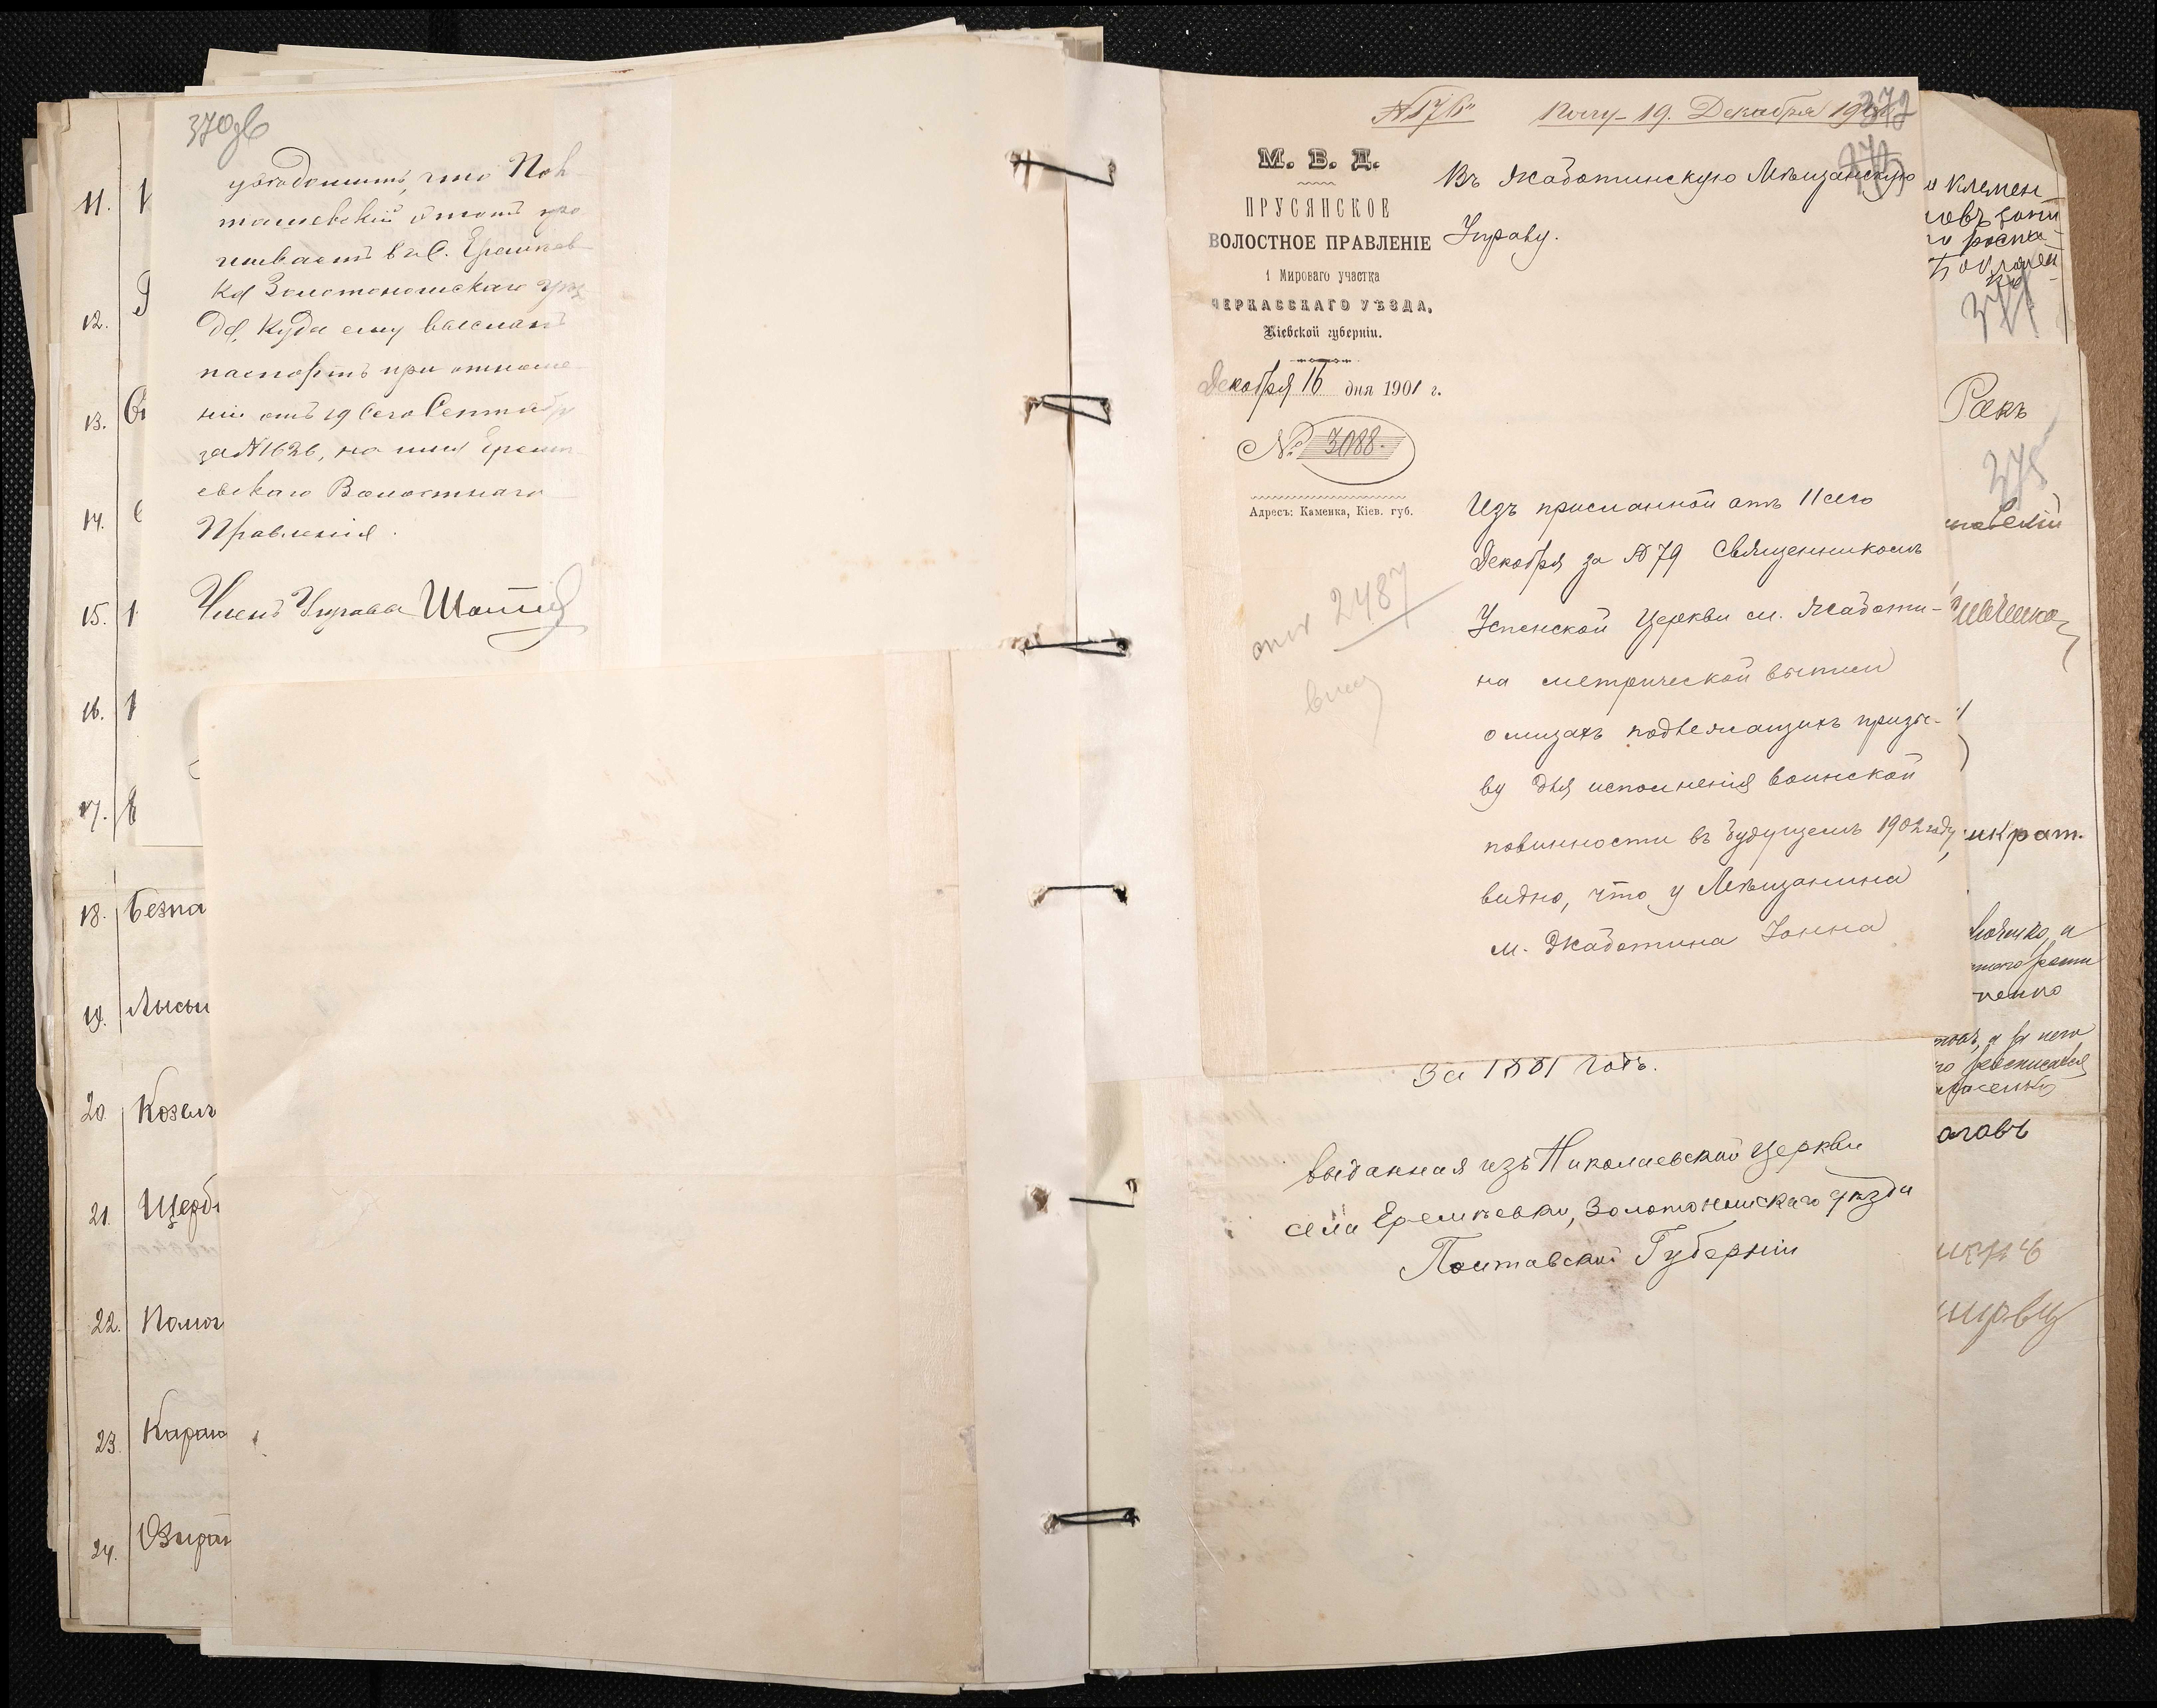 370 об
увѣдомить, что Пов
ташевскій этотъ про
живаетъ въ с. Еремѣев
кѣ Золотоношскаго уѣз
да, куда ему высланъ
паспортъ при отноше
ніи отъ 19 сего Сентябр
за № 1626, на имя Ереми
евскаго Волостнаго
Правленія.
Членъ Управы
11.
12.
13.
14.
15.
16.
17.
18. Безпа
19. Лисы
20. Козелъ
21. Щерб
22. Помог
23. Карак
24.
Получ. 19. Декабря 1901
372
М. В. Д.
ПРУСЯНСКОЕ
ВОЛОСТНОЕ ПРАВЛЕНІЕ
1 Мироваго участка
ЧЕРКАССКАГО УѢЗДА,
Кіевской губерніи.
Декабря 16 дня 1901 г.
№ 3088.
Адресъ: Каменка, Кіев. губ.
Въ Жаботинскую Мѣщанскую
Управу.
отв 2487
Изъ присланной отъ 11 сего
Декабря за № 79 Священникомъ
Успенской Церкви м. Жаботи-
на метрической выписи
о лицахъ подлежащихъ призы-
ву для исполненія воинской
повинности въ будущемъ 1902 году,
видно, что у Мѣщанина
м. Жаботина Іоанна
За 1881 годъ.
выданная изъ Николаевской церкви
села Еремѣевки, Золотоношскаго уѣзда
Полтавской Губерніи
и Клемен
374
Ракъ
375
шевскій
икрат.
ненко